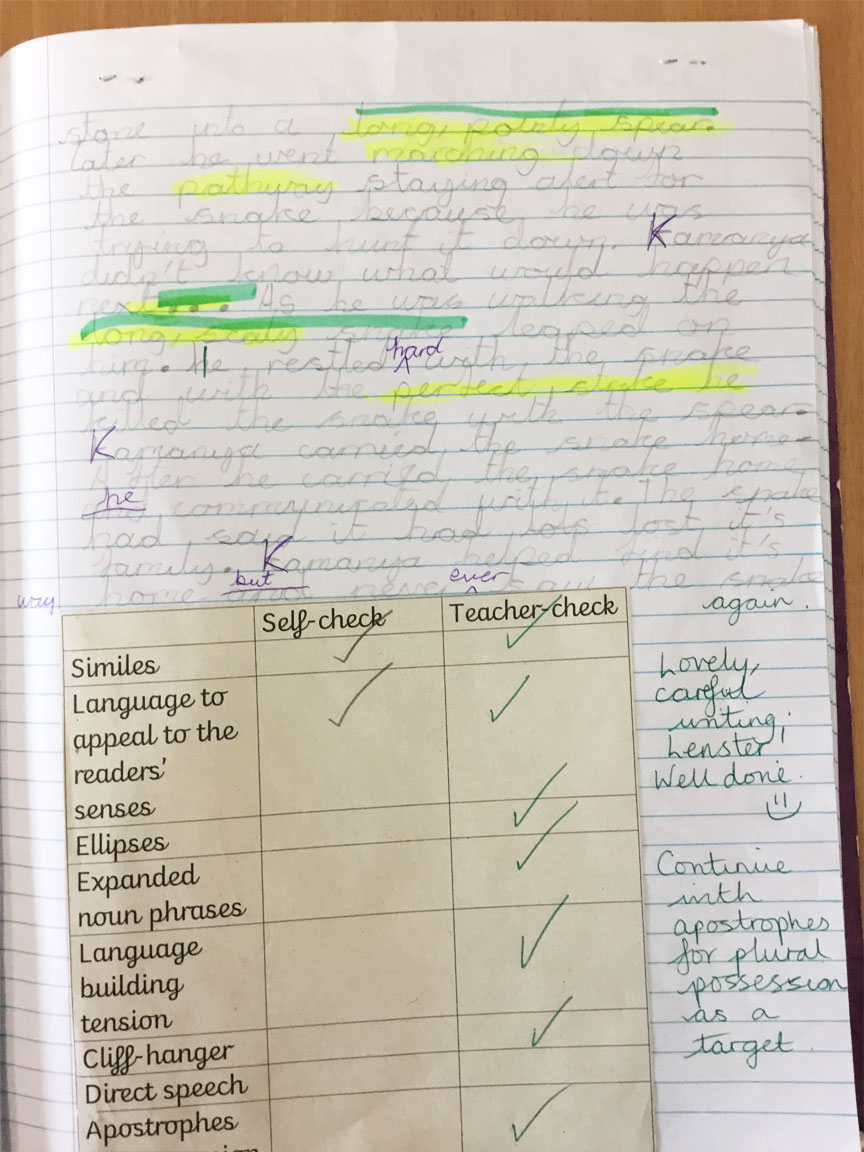 stone into a long, pointy spear.
later he went marching down
the pathway staying alert for
the snake because he was
trying to hunt it down. Kamanya
didn't know what would happen
next... As he was walking the
long, scaly snake leaped on
hard
him. He restled with the snake
and with the perfect strike he
killed the snake with the spear.
Kamanya carried the snake home.
After he carried the snake home
he communicated with it. The snake
had said it had lost it's
family. Kamanya helped find it's
but ever
way home and never saw the snake
again.
Self-check Teacher-check
Similes
Language to
appeal to the
readers'
senses
Ellipses
Expanded
noun phrases
Language
building
tension
Cliff-hanger
Direct speech
Apostrophes
Lovely,
careful
writing,
Lenster!
Well done.
Continue
with
apostrophes
for plural
possession
as a
target.